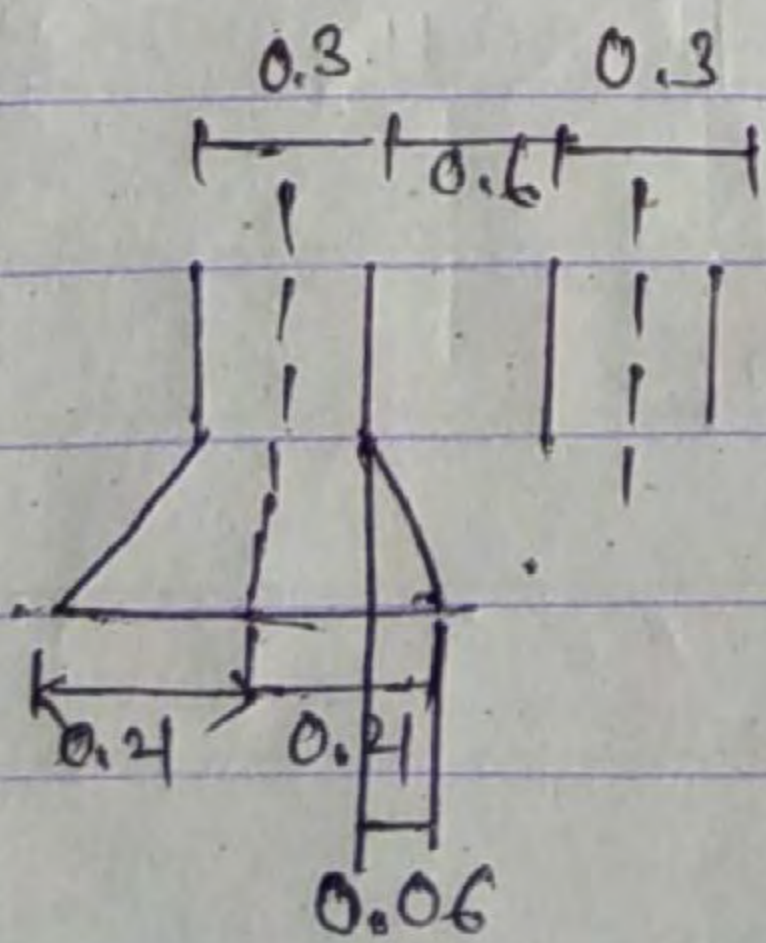 0.3 0.3
0.6
0.21 0.21
0.06